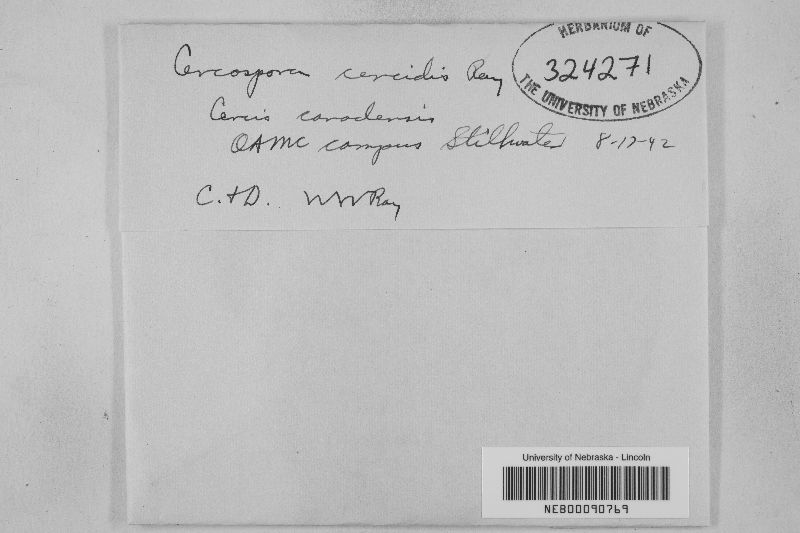 HERBARIUM OF
324271
THE UNIVERSITY OF NEBRASKA
Cercospora cercidis Ray
Cercis canadensis
OAMC campus Stillwater 8-17-42
C. + D. WWRay
University of Nebraska - Lincoln
NEB00090769